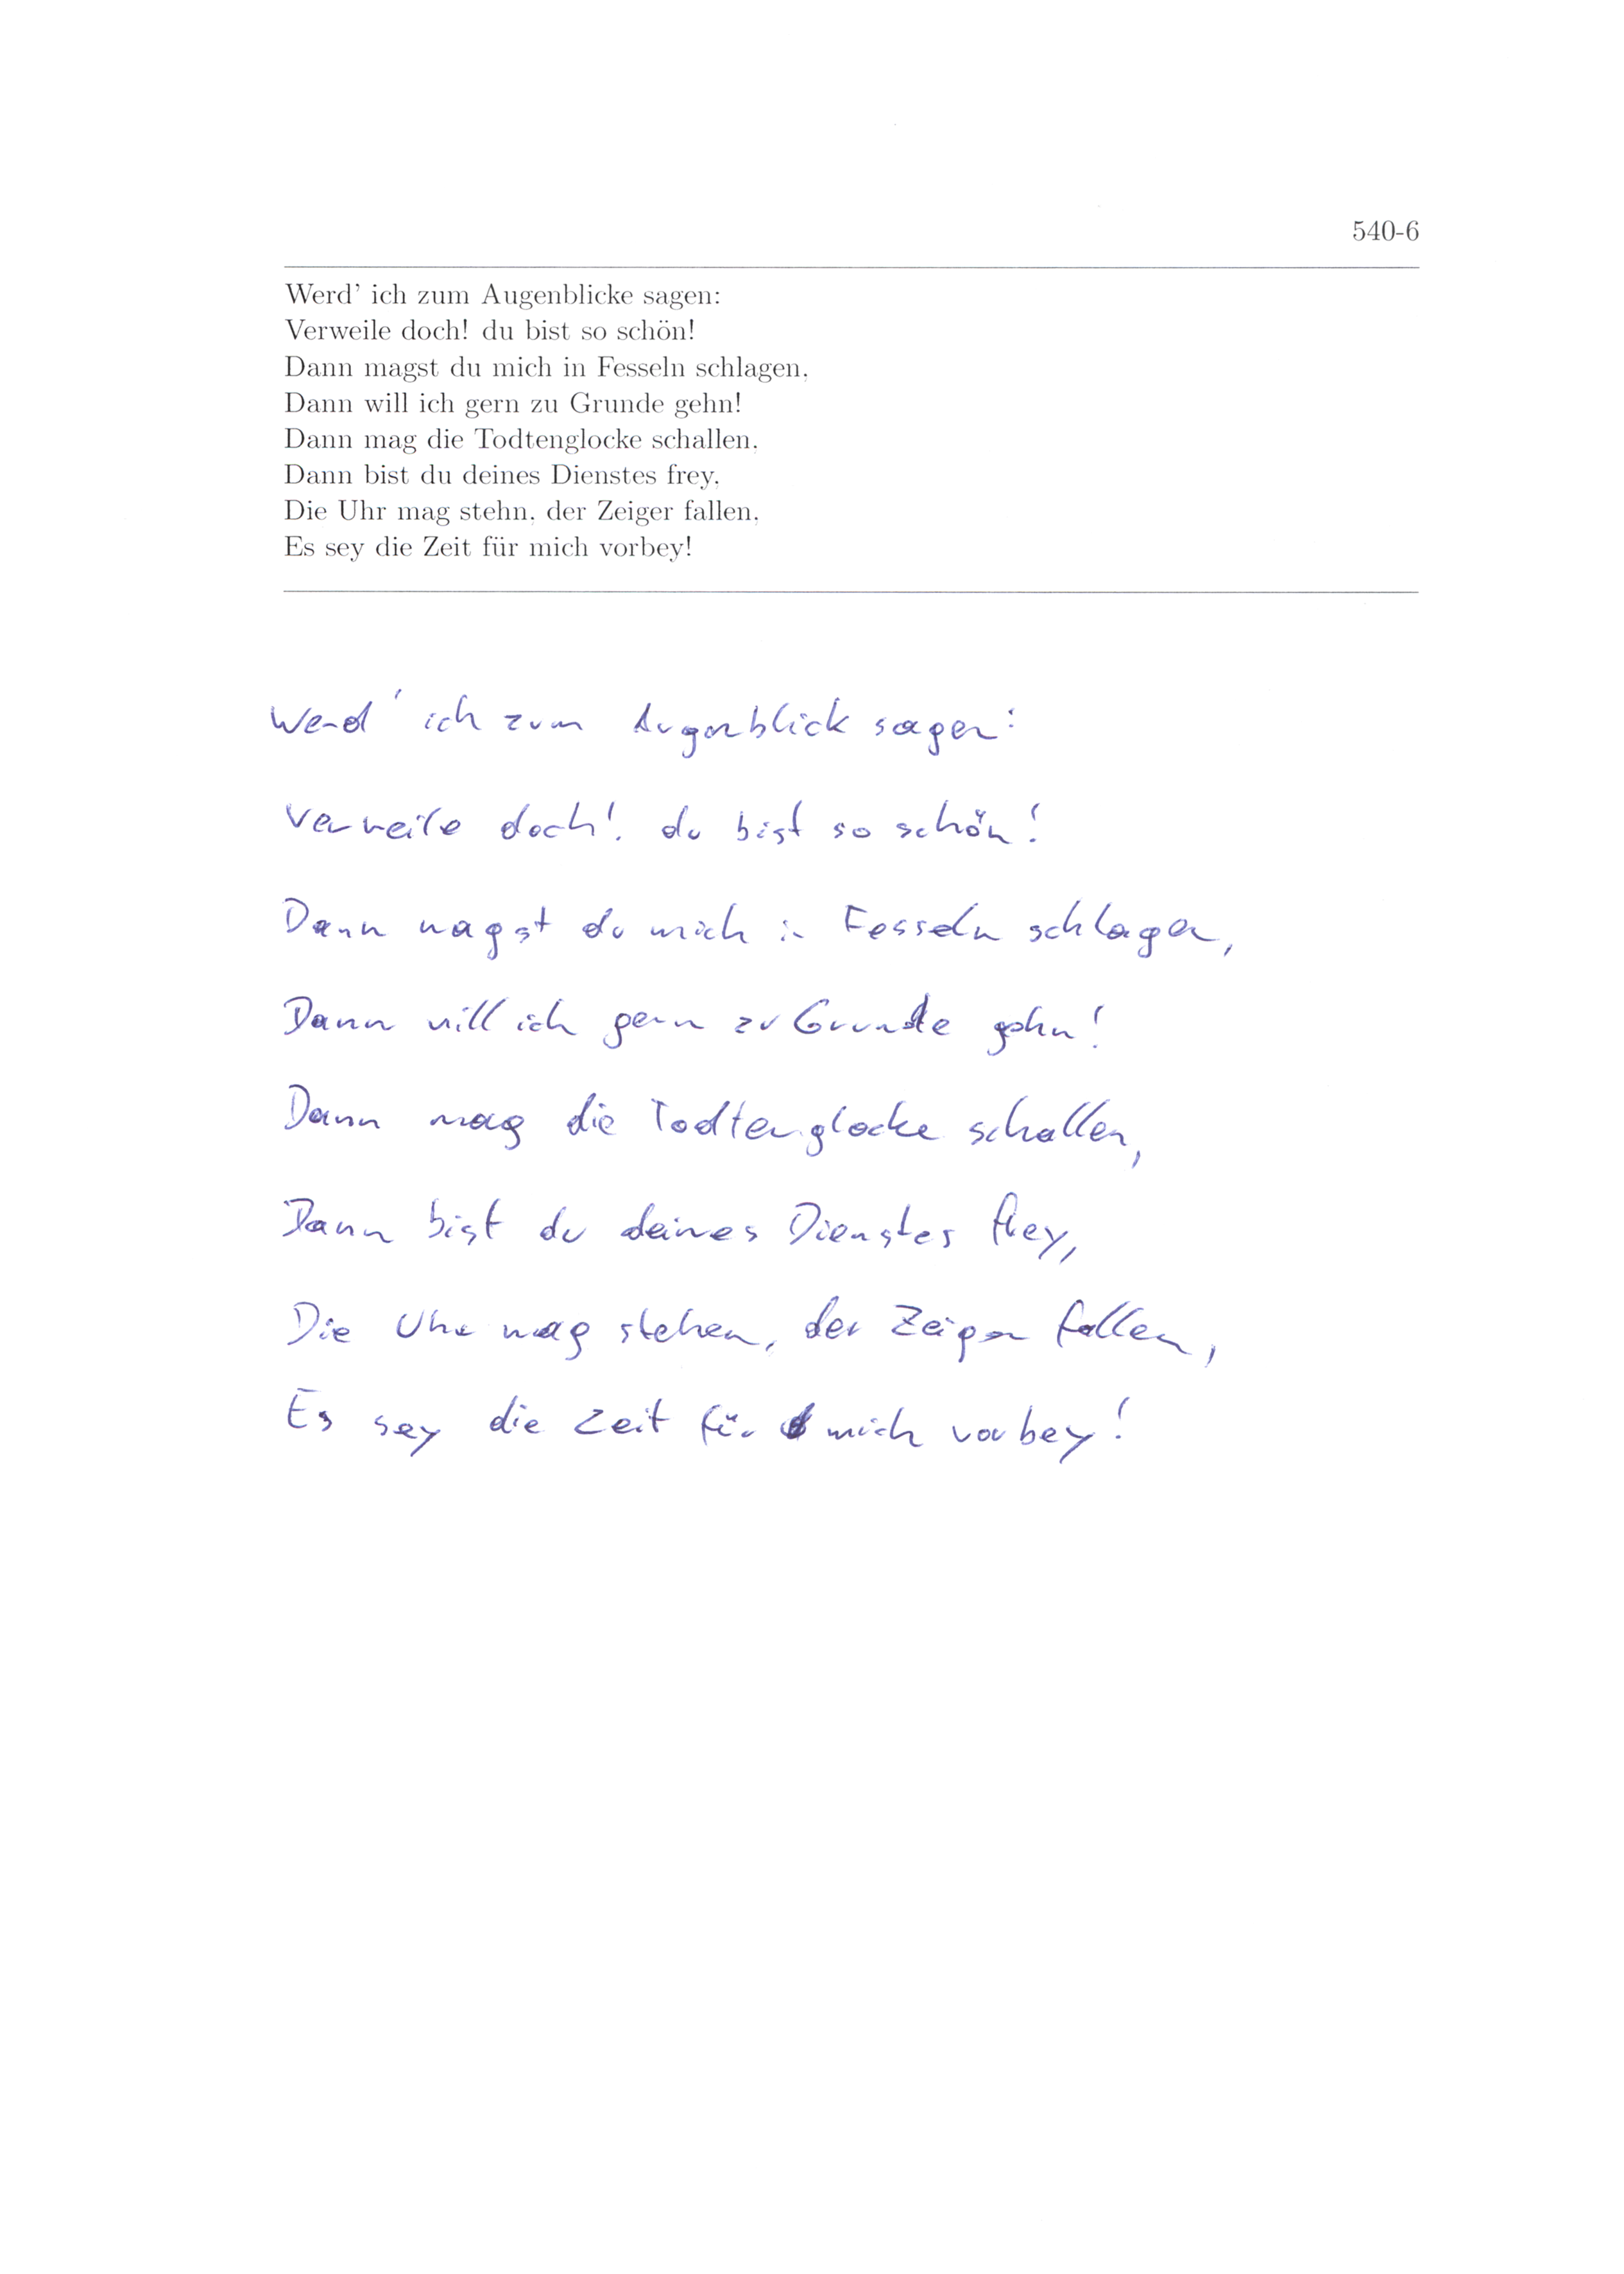 540-6
Werd' ich zum Augenblicke sagen:
Verweile doch! du bist so schön!
Dann magst du mich in Fesseln schlagen,
Dann will ich gern zu Grunde gehn!
Dann mag die Todtenglocke schallen,
Dann bist du deines Dienstes frey,
Die Uhr mag stehn, der Zeiger fallen,
Es sey die Zeit für mich vorbey!
Werd' ich zum Augenblick sagen:
Verweile doch! du bist so schön!
Dann magst du mich in Fesseln schlagen,
Dann will ich gern zu Grunde gehn!
Dann mag die Todtenglocke schallen,
Dann bist du deines Dienstes frey,
Die Uhr mag stehen, der Zeiger fallen,
Es sey die Zeit für mich vorbey!